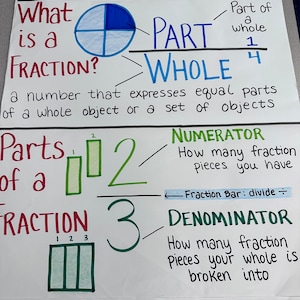 What
is a
FRACTION?
PART
WHOLE
Part of
a
whole
1
4
a number that expresses equal parts
of a whole object or a set of objects
Parts
of a
FRACTION
1
2
2
3
1 2 3
NUMERATOR
How many fraction
pieces you have
Fraction Bar: divide ÷
DENOMINATOR
How many fraction
pieces your whole is
broken into